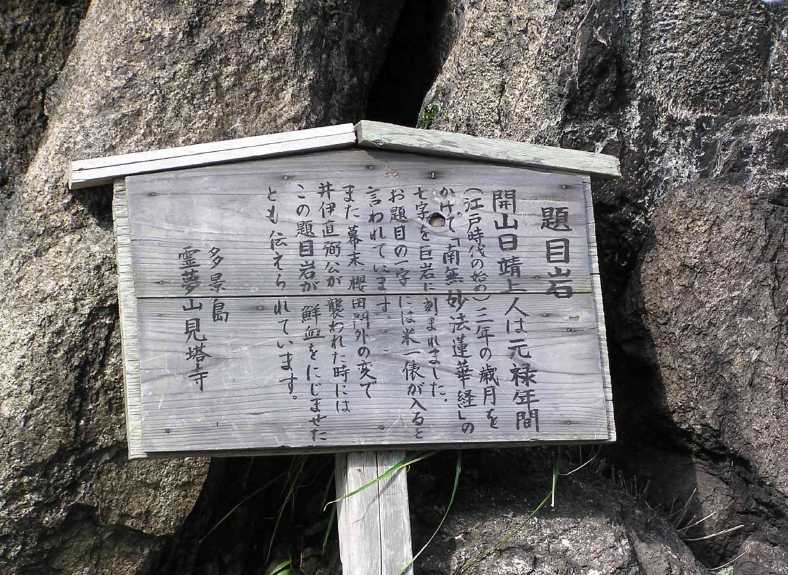 題目岩
開山日靖上人は元禄年間
(江戸時代の始め)三年の歳月を
かけて「南無妙法蓮華経」の
七字を巨岩に刻まれました。
お題目の一字には米一俵が入ると
言われています。
また幕末櫻田門外の変で
井伊直弼公が襲われた時には
この題目岩が鮮血をにじませた
とも伝えられています。
多景島
霊夢山見塔寺